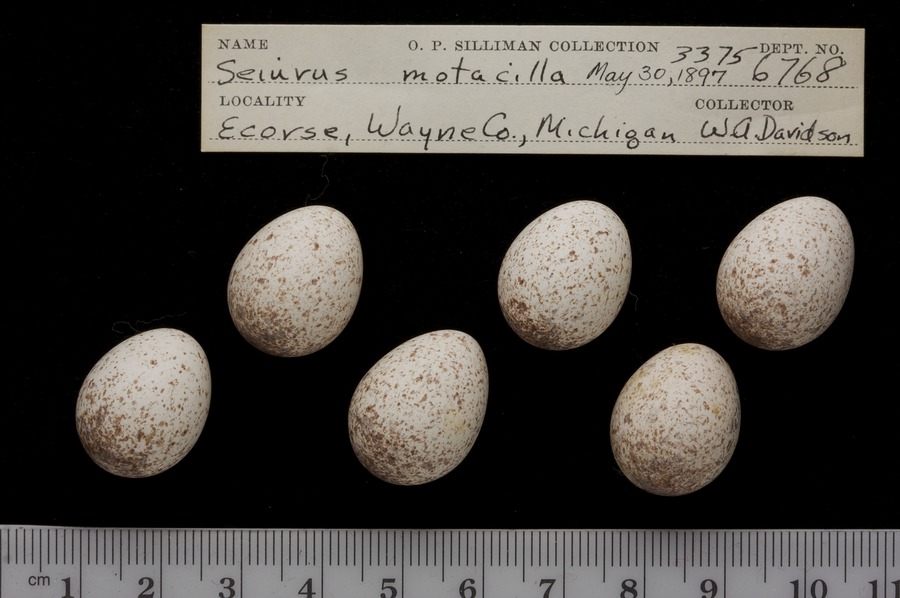 NAME O. P. SILLIMAN COLLECTION 3375 DEPT. NO.
Seiurus motacilla May 30, 1897 6768
LOCALITY COLLECTOR
Ecorse, Wayne Co., Michigan W.A. Davidson
cm 1 2 3 4 5 6 7 8 9 10 11